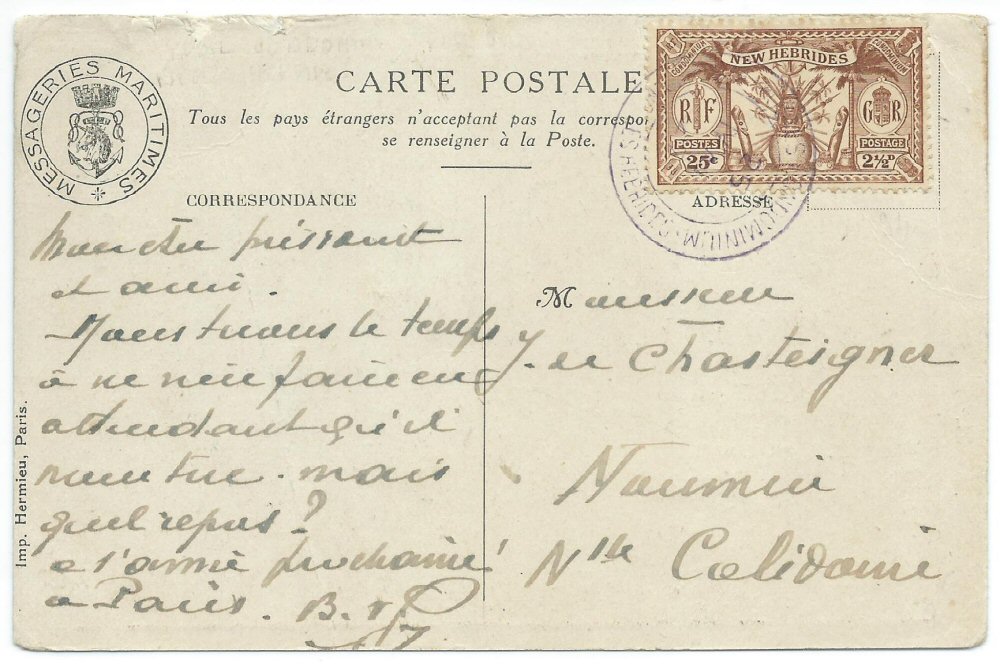 MESSAGERIES MARITIMES
CARTE POSTALE
Tous les pays étrangers n'acceptant pas la correspo
se renseigner à la Poste.
NEW HEBRIDES
R F
G R
POSTES
POSTAGE
25c
2½D
CONDOMINIUM
HEBRIDES
CORRESPONDANCE
ADRESSE
Mon cher
et ami.
Nous tuons le temps
à ne rien faire en
attendant qu'il
nous tue. mais
quel repos?
à l'année prochaine
à Paris. B.
Monsieur
J. de Chasteigner
Nouméa
Nlle Calédonie
Imp. Hermieu, Paris.